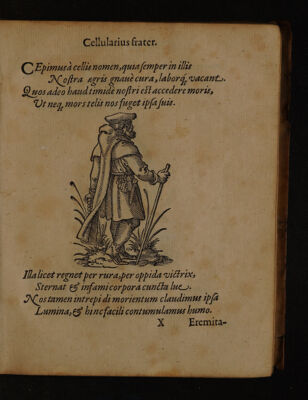 Cellularius frater.
CEpimus à cellis nomen, quia semper in illis
Nostra ægris gnauè cura, laborq́; vacant.
Quos adeo haud timidè nostri est accedere moris,
Vt neq́; mors telis nos fuget ipsa suis.
Illa licet regnet per rura, per oppida victrix,
Sternat & infami corpora cuncta lue.
Nos tamen intrepidi morientum claudimus ipsa
Lumina, & hinc facili contumulamus humo.
X Eremita-